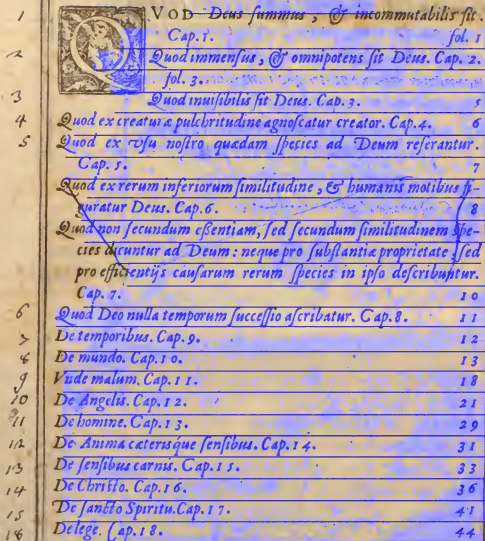 1 QVOD Deus summus, & incommutabilis sit.
Cap. 1. fol. 1
2 Quod immensus, & omnipotens sit Deus. Cap. 2.
fol. 3.
3 Quod inuisibilis sit Deus. Cap. 3. 5
4 Quod ex creaturæ pulchritudine agnoscatur creator. Cap. 4. 6
5 Quod ex vsu nostro quædam species ad Deum referantur.
Cap. 5. 7
Quod ex rerum inferiorum similitudine, & humanis motibus fi-
guratur Deus. Cap. 6. 8
Quod non secundum essentiam, sed secundum similitudinem spe-
cies dicuntur ad Deum: neque pro substantiæ proprietate, sed
pro efficientijs causarum rerum species in ipso describuntur.
Cap. 7. 10
6 Quod Deo nulla temporum successio ascribatur. Cap. 8. 11
7 De temporibus. Cap. 9. 12
8 De mundo. Cap. 10. 13
9 Vnde malum. Cap. 11. 18
10 De Angelis. Cap. 12. 21
11 De homine. Cap. 13. 29
12 De Anima cæterisque sensibus. Cap. 14. 31
13 De sensibus carnis. Cap. 15. 33
14 De Christo. Cap. 16. 36
15 De sancto Spiritu. Cap. 17. 41
16 De lege. Cap. 18. 44